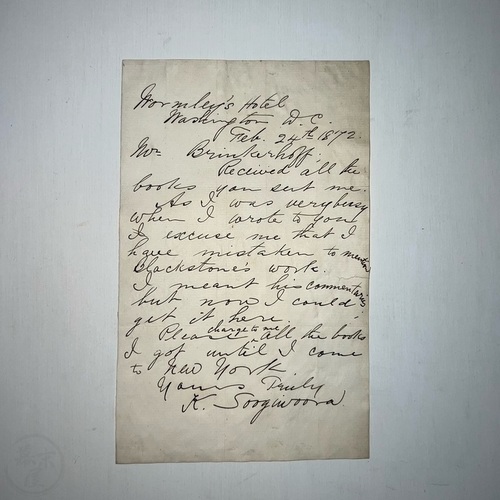 Wormley's Hotel
Washington D.C.
Feb. 24th 1872.
Mr. Brinkerhoff,
Received all the
books you sent me.
As I was very busy
when I wrote to you
I excuse me that I
have mistaken to mention
Blackstone's work.
I meant his commentaries
but now I could
get it here.
Please charge to me all the books
I got until I come
to New York.
Yours Truly
K. Soogiwoora.